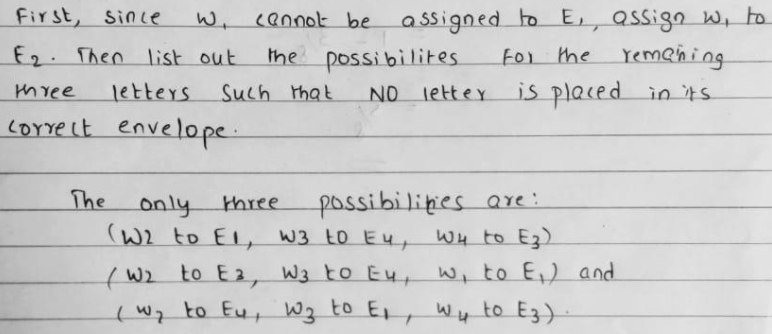 First, since W₁ cannot be assigned to E₁, assign W₁ to
E₂. Then list out the possibilites for the remaining
three letters such that NO letter is placed in its
correct envelope.
The only three possibilities are:
(W2 to E1, W3 to E4, W4 to E3)
(W2 to E3, W3 to E4, W₁ to E₁) and
(W₂ to E4, W3 to E₁, W4 to E3).